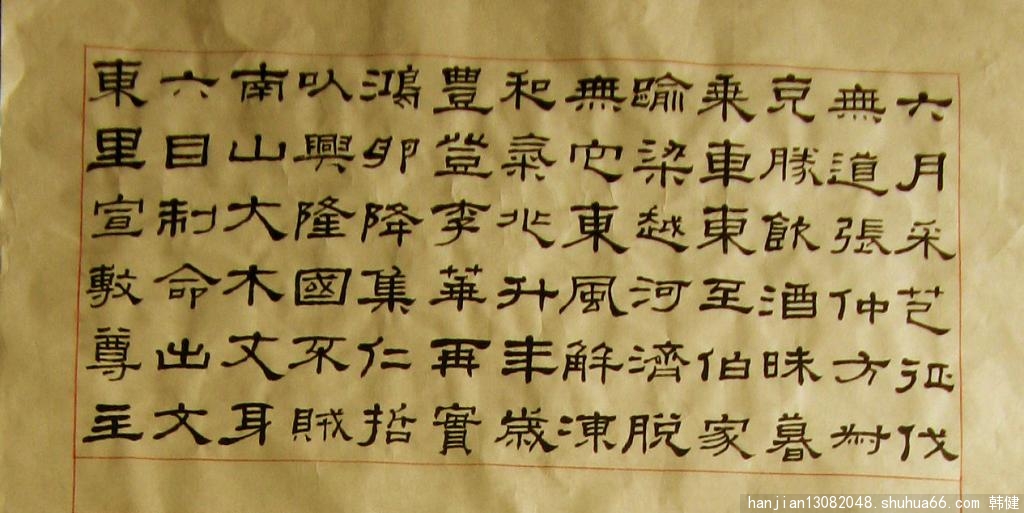 六月采芑征伐
無道張仲方叔
克勝飲酒昧暮
乘車東至伯家
踰梁越河濟脫
無它東風解凍
和氣兆升年歲
豐登李華再實
鴻卵降集仁哲
以興隆國不賊
南山大木文身
六目制命出文
東里宣敷尊主
hanjian13082048.shuhua66.com 韩健